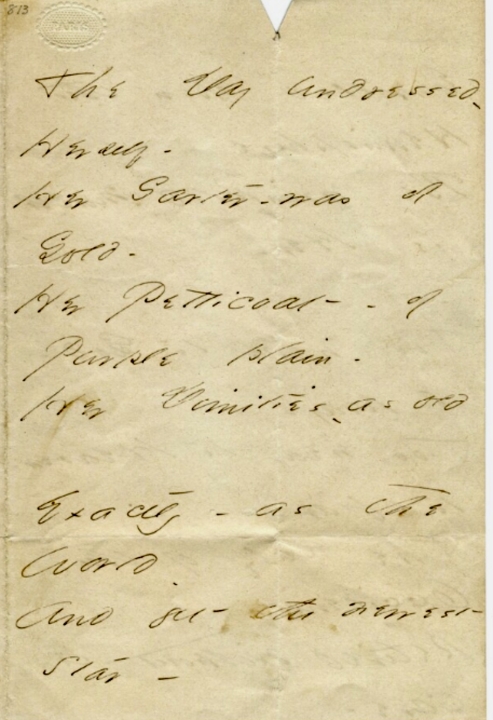 PARIS
The Day undressed -
Herself -
Her Garter - was of
Gold -
Her Petticoat - - of
Purple plain -
Her Dimities - as old
Exactly - as the
World
And yet the newest
Star -